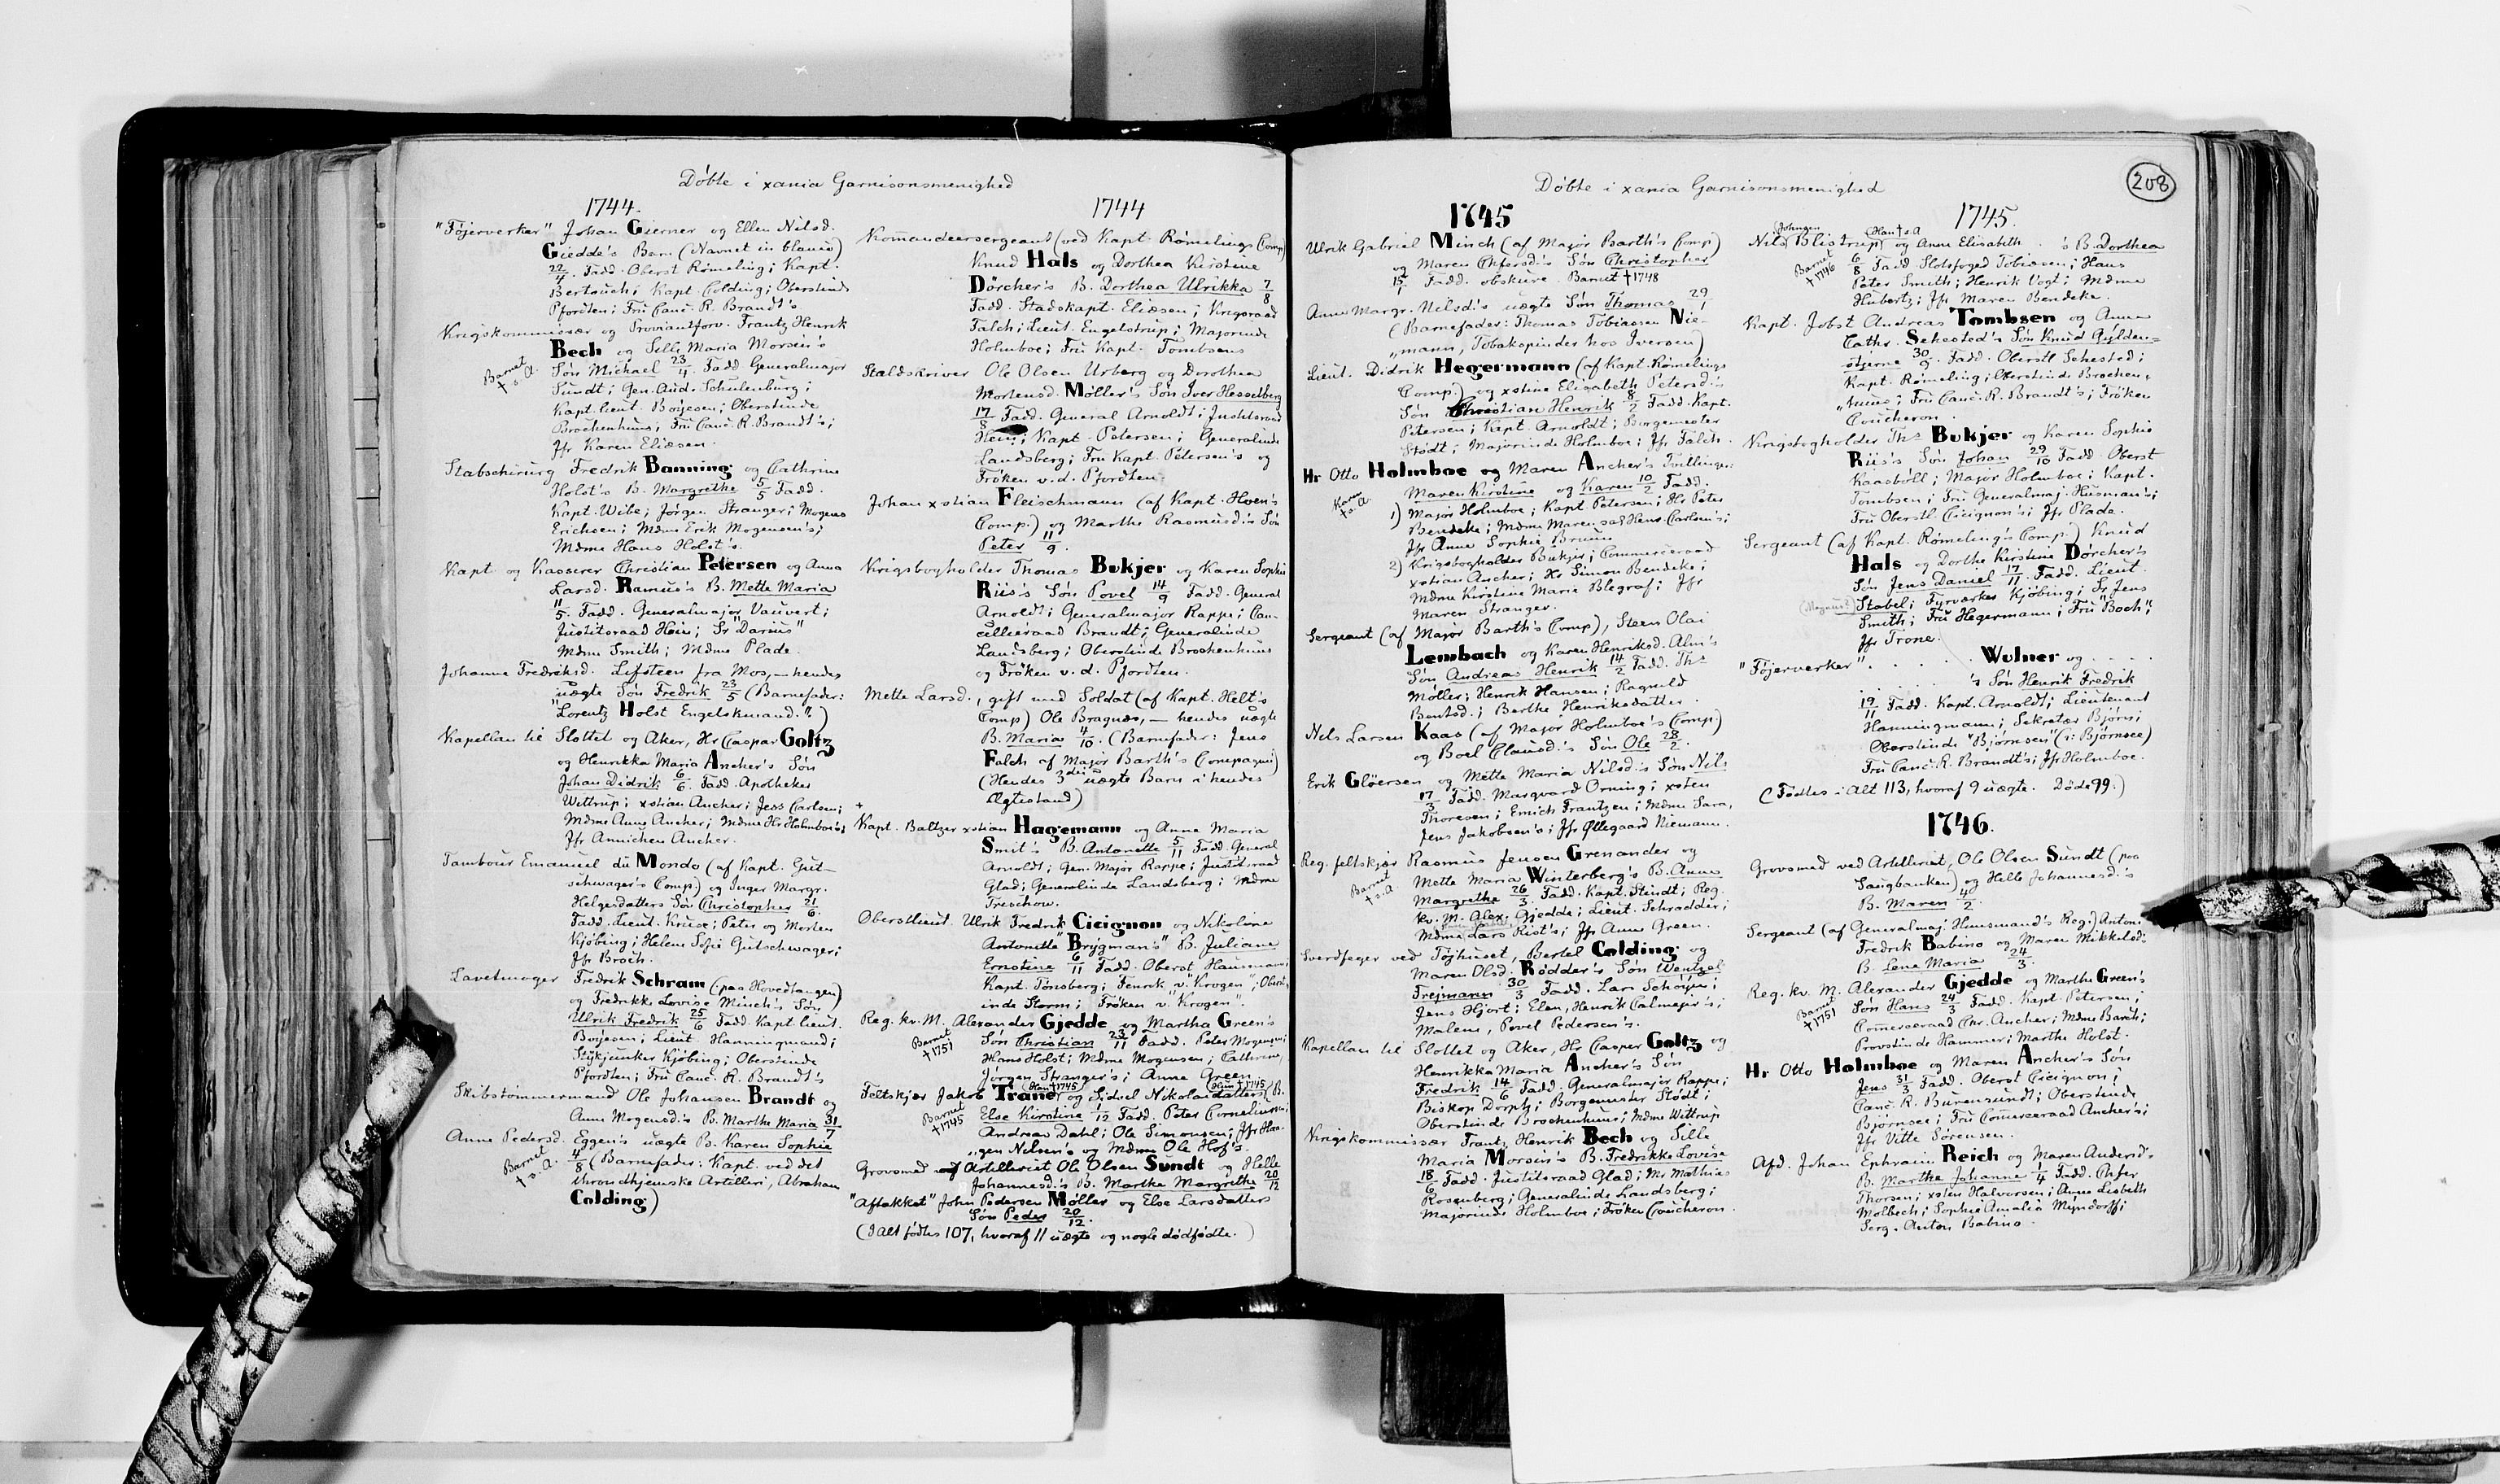 Døbte i xania Garnisonsmenighed
1744.
"Föjerverker" Johan Gierner og Ellen Nilsd.
Giedde's Barn (Navnet in blanco)
Fadd. Oberst Rømeling; Kapt.
Bertouch; Kapt. Colding; Oberstinde
Pfordten; Fru Canc. R. Brandt's
Krigskommissær og Proviantforv. Frantz Henrik
Bech og Sille Maria Morsin's
Barnet † s. A.
Søn Michael 23/4. Fadd Generalmajor
Sundt; Gen. Aud. Schulenburg;
Kapt. lieut. Böyesen; Oberstinde
Brockenhuus; Fru Canc. R. Brandt's;
Jfr Karen Eliesen.
Stabschirurg Fredrik Banning og Cathrine
Holst's B. Margrethe 5/5 Fadd.
Kapt. Wibe; Jørgen Stranger; Mogens
Erichsen; Mdme Erik Mogensen's;
Mdme Hans Holst's.
Kapt og Kasserer Christian Petersen og Anna
Larsd. Ramus's B. Mette Maria
11/5. Fadd. Generalmajor Vauvert;
Justitsraad Hein; Sr "Darius"
Mdme Smith; Mdme Plade.
Johanne Fredriksd. Lifsteen fra Moss, – hendes
uægte Søn Fredrik 23/5 (Barnefader:
"Lorentz Holst Engelskmand.")
Kapellan til Slottet og Aker, Hr Caspar Goltz
og Henrikka Maria Ancher's Søn
Johan Didrik 6/6. Fadd. Apotheker
Wittrup; xstian Ancher; Jess Carlsen;
Mdme Anna Ancher; Mdme Hr Holmboe's;
Jfr Annichen Ancher.
Tambour Emanuel du Mondo (af Kapt. Gut-
schwager's Comp.) og Inger Margr.
Helgesdatters Søn Christopher 21/6.
Fadd. Lieut. Kruse; Peter og Morten
Kjöbing; Helene Sofie Gutschwager;
Jfr Broch.
Lavetmager Fredrik Schram (paa Hovedtangen)
og Fredrikke Lovise Minch's Søn
Ulrik Fredrik 25/6 Fadd. Kapt. lieut.
Böyesen; Lieut. Hanningmand;
Stykjunker Kjöbing; Oberstinde
Pfordten; Fru Canc. R. Brandt's
Skibstömmermand Ole Johansen Brandt og
Anne Mogensd's B. Marthe Maria 31/7
Anne Pedersd. Eggen's uægte B. Karen Sophie
Barnet † s. A.
4/8 (Barnefader: Kapt. ved det
throndhjemske Artilleri, Abraham
Colding)
1744
Komandeersergeant (ved Kapt. Rømelings Comp)
Knud Hals og Dorthea Kirstine
Dörcher's B. Dorthea Ulrikka 7/8
Fadd. Stadskapt. Eliesen; Krigsraad
Falch; Lieut. Engelstrup; Majorinde
Holmboe; Fru Kapt. Tombsens
Staldskriver Ole Olsen Urberg og Dorothea
Mortensd. Møller's Søn Iver Hesselberg
17/8 Fadd. General Arnoldt; Justitsraad
Hein; Kapt. Petersen; Generalinde
Landsberg; Fru Kapt. Petersen's og
Frøken v. d. Pfordten.
Johan xstian Fleischmann (af Kapt. Hoen's
Comp.) og Marthe Rasmusd.'s Søn
Peter 11/9.
Krigsbogholder Thomas Bukjer og Karen Sophie
Riis's Søn Povel 14/9 Fadd. General
Arnoldt; Generalmajor Rappe; Can-
cellieraad Brandt; Generalinde
Landsberg; Oberstinde Brockenhuus
og Frøken v. d. Pfordten.
Mette Larsd., gift med Soldat (af Kapt. Helt's
Comp) Ole Bragnæs, – hendes uægte
B. Maria 4/10. (Barnefader: Jens
Falch af Major Barth's Compagni)
(Hendes 3die uægte Barn i hendes
Ægtestand)
+
Kapt. Baltzer xstian Hagemann og Anne Maria
Smit's B. Antonette 5/11 Fadd. General
Arnoldt; Gen. Major Rappe; Justitsraad
Glad; Generalinde Landsberg; Mdme
Treschow.
Oberstlieut. Ulrik Fredrik Cicignon og Nikoline
Antonette "Brygman's" B. Juliane
Ernstine 6/11 Fadd. Oberst Hausmann;
Kapt. Tönsberg; Fenrik v. "Krogen"; Oberst-
inde Storm; Frøken v. "Krogen"
Reg. kv. M. Alexander Gjedde og Martha Green's
Barnet † 1751
Søn Christian 23/11 Fadd. Peter Mogensen;
Hans Holst; Mdme Mogensen; Cathrine,
Jörgen Stranger's; Anne Green.
(Han † 1745) (Hun † 1745)
Feltskjær Jakob Trane og Sidsel Nikolaidatters B.
Barnet † 1745
Else Kirstine 1/12 Fadd. Peter Cornelius;
Andreas Dahl; Ole Simonsen; Jfr Han-
"gen Nilsen's og Mdme Ole Hof's.
Grovsmed ved Artilleriet Ole Olsen Sundt og Helle
Johannesd.'s B. Marthe Margrethe 20/12
"Aftakket" John Pedersen Møller og Else Larsdatters
Søn Peder 20/12.
(I Alt fødtes 107, hvoraf 11 uægte og nogle dødfødte.)
Døbte i xania Garnisonsmenighed
208
1745
Ulrik Gabriel Minch (af Major Barth's Comp)
og Maren Chfersd.'s Søn Christopher
15/1 Fadd. obskure. Barnet † 1748
Anne Margr. Nilsd.'s uægte Søn Thomas 29/1
(Barnefader: Thomas Tobiassen Nie-
"mann, Tobakspinder hos Iversen)
Lieut. Didrik Hegermann (af Kapt. Rømelings
Comp.) og xstine Elisabeth Petersd.'s
Søn Christian Henrik 8/2 Fadd. Kapt.
Petersen; Kapt. Arnoldt; Borgemester
Stødt; Majorinde Holmboe; Jfr Falch.
Hr Otto Holmboe og Maren Ancher's Tvillinger:
Karen † s. A.
Maren Kirstine og Karen 10/2 Fadd.
1) Major Holmboe; Kapt. Petersen; Hr Peter
Bendeke; Mdme Maren sal Henr. Carlsen's;
Jfr Anne Sophie Bruun
2) Krigsbogholder Bukjer; Commerceraad
xstian Ancher; Hr Simon Bendeke;
Mdme Kirstine Marie Blegraf; Jfr
Maren Stranger.
Sergeant (af Major Barth's Comp), Steen Olai
Lembach og Karen Henriksd. Alm's
Søn Andreas Henrik 14/2 Fadd. Ths
Møller; Henrik Hansen; Ragnild
Bentsd.; Berthe Henriksdatter.
Nels Larsen Kaas (af Major Holmboe's Comp)
og Boel Clausd.'s Søn Ole 28/2.
Erik Glöersen og Mette Maria Nilsd.'s Søn Nils
17/3 Fadd. Marqvard Orning; xsten
Thoresen; Emich Frantzen; Mdme Sara,
Jens Jakobsen's; Jfr Øllegaard Niemann.
Reg. feltskjær Rasmus Jensen Grenander og
Mette Maria Winterberg's B. Anne
Barnet † s. A.
Margrethe 26/3 Fadd. Kapt. Stindt; Reg.
kv. M. Alex. Gjedde; Lieut. Schrødder;
Mdme Lars Rist's; Jfr Anne Green.
Sverdfeger ved Töjhuset, Bertel Colding og
Maren Olsd. Rødder's Søn Wentzel
Frejmann 30/3 Fadd. Lars Schöyen;
Jens Hjort; Elen, Henrik Calmejer's;
Malene, Povel Pedersen's.
Kapellan til Slottet og Aker, Hr Casper Goltz og
Henrikka Maria Ancher's Søn
Fredrik 14/6 Fadd. Generalmajor Rappe;
Biskop Dorph; Borgemester Stødt;
Oberstinde Brockenhuus; Mdme Wittrup
Krigskommissær Frantz Henrik Bech og Sille
Maria Morsin's B. Fredrikke Lovise
18/6 Fadd. Justitsraad Glad; Mr Mathias
Rosenberg; Generalinde Landsberg;
Majorinde Holmboe; Frøken Coucheron.
1745.
Johnsen (Han † s. A
Nils Blistrup og Anne Elisabeth . 's B. Dorthea
Barnet † 1746
6/8 Fadd Slotsfoged Tobiesen; Hans
Peter Smith; Henrik Vogt; Mdme
Hubertz; Jfr Maren Bendeke.
Kapt. Jobst Andreas Tombsen og Anna
Cathr. Sehested's Søn Knud Gylden-
stjerne 30/9. Fadd. Oberstl Sehested;
Kapt. Rømeling; Oberstinde Brocken-
"huus; Fru Canc. R. Brandt's; Frøken
Coucheron.
Krigsbogholder Ths Bukjer og Karen Sophie
Riis's Søn Johan 29/10 Fadd. Oberst
Kaasböll; Major Holmboe; Kapt.
Tombsen; Fru Generalmaj. Husman's;
Fru Oberstl. Cicignon's; Jfr Plade.
Sergeant (af Kapt. Rømeling's Comp.) Knud
Hals og Dorthe Kirstine Dörcher's
Søn Jens Daniel 17/11. Fadd. Lieut.
(Magnus) Stabel; Fyrværker Kjöbing; Sr Jens
Smith; Fru Hegermann; Fru "Boch";
Jfr Trone.
"Föjerverker" . . . . Wulner og . . . .
. . . . 's Søn Henrik Fredrik
19/11 Fadd. Kapt. Arnoldt; Lieutenant
Hanningmann; Sekretær Björn;
Oberstinde "Bjørnsen" (ɔ: Bjørnsee)
Fru Canc. R. Brandt's; Jfr Holmboe.
(Fødtes i Alt 113, hvoraf 9 uægte. Døde 99.)
1746.
Grovsmed ved Artilleriet, Ole Olsen Sundt (paa
Saugbanken) og Helle Johannesd.'s
B. Maren 4/2.
Sergeant (af Generalmaj. Hunsmand's Reg.) Anton
Fredrik Babino og Maren Mikkelsd's
B. Lene Maria 24/3.
Reg. kv. M. Alexander Gjedde og Marthe Green's
Barnet † 1751
Søn Hans 24/3 Fadd. Kapt. Petersen;
Comerceraad Chr. Ancher; Mdme Barth;
Provstinde Hammer; Marthe Holst.
Hr Otto Holmboe og Maren Ancher's Søn
Jens 31/3 Fadd. Oberst Cicignon;
Canc. R. Burensundt; Oberstinde
Bjørnsee; Fru Comerceraad Ancher's;
Jfr Vitte Sørensen.
Afd. Johan Ephraim Reich og Maren Andersd's
B. Marthe Johanne 1/4 Fadd. Peter
Thorsen; xsten Halvorsen; Anne Lisbeth
Molbech; Sophie Amalia Myndorff;
Serg. Anton Babino.